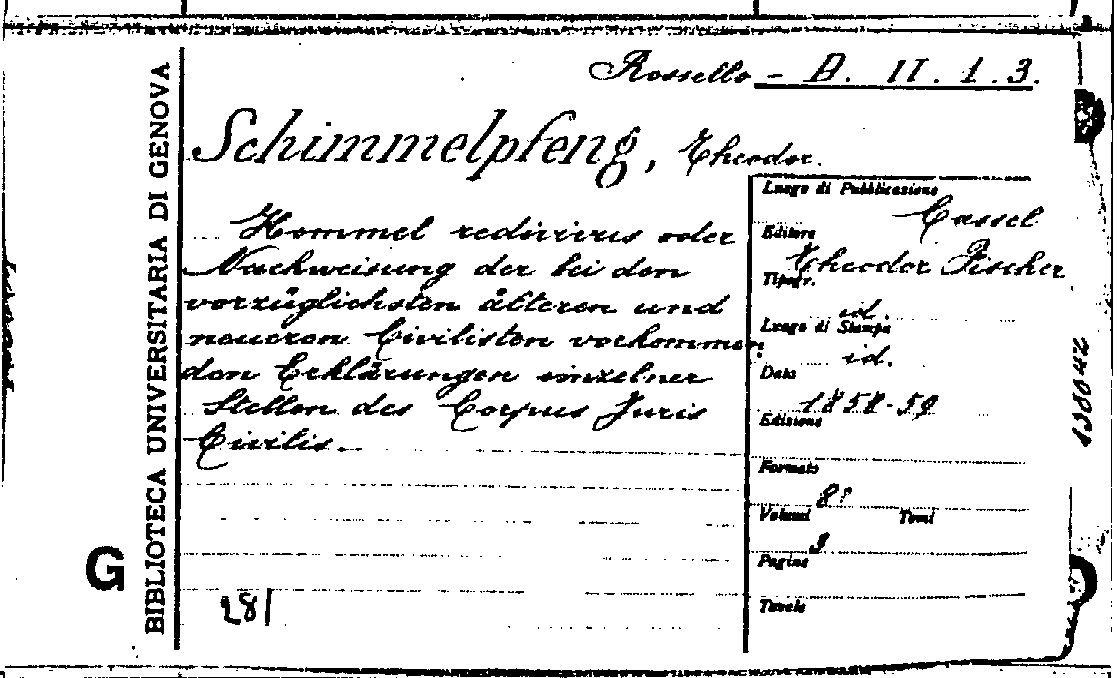 Rossello - D. II. 1. 3.
Schimmelpfeng, Theodor.
Hommel redivivus oder
Nachweisung der bei den
vorzüglichsten älteren und
neueren Civilisten vorkommen
den Erklärungen einzelner
Stellen des Corpus Juris
Civilis.
281
Luogo di Pubblicazione
Cassel
Editore
Theodor Fischer
Tipogr.
id.
Luogo di Stampa
id.
Data
1858-59
Edizione
Formato
8º
Volumi Tomi
3
Pagine
Tavole
BIBLIOTECA UNIVERSITARIA DI GENOVA
G